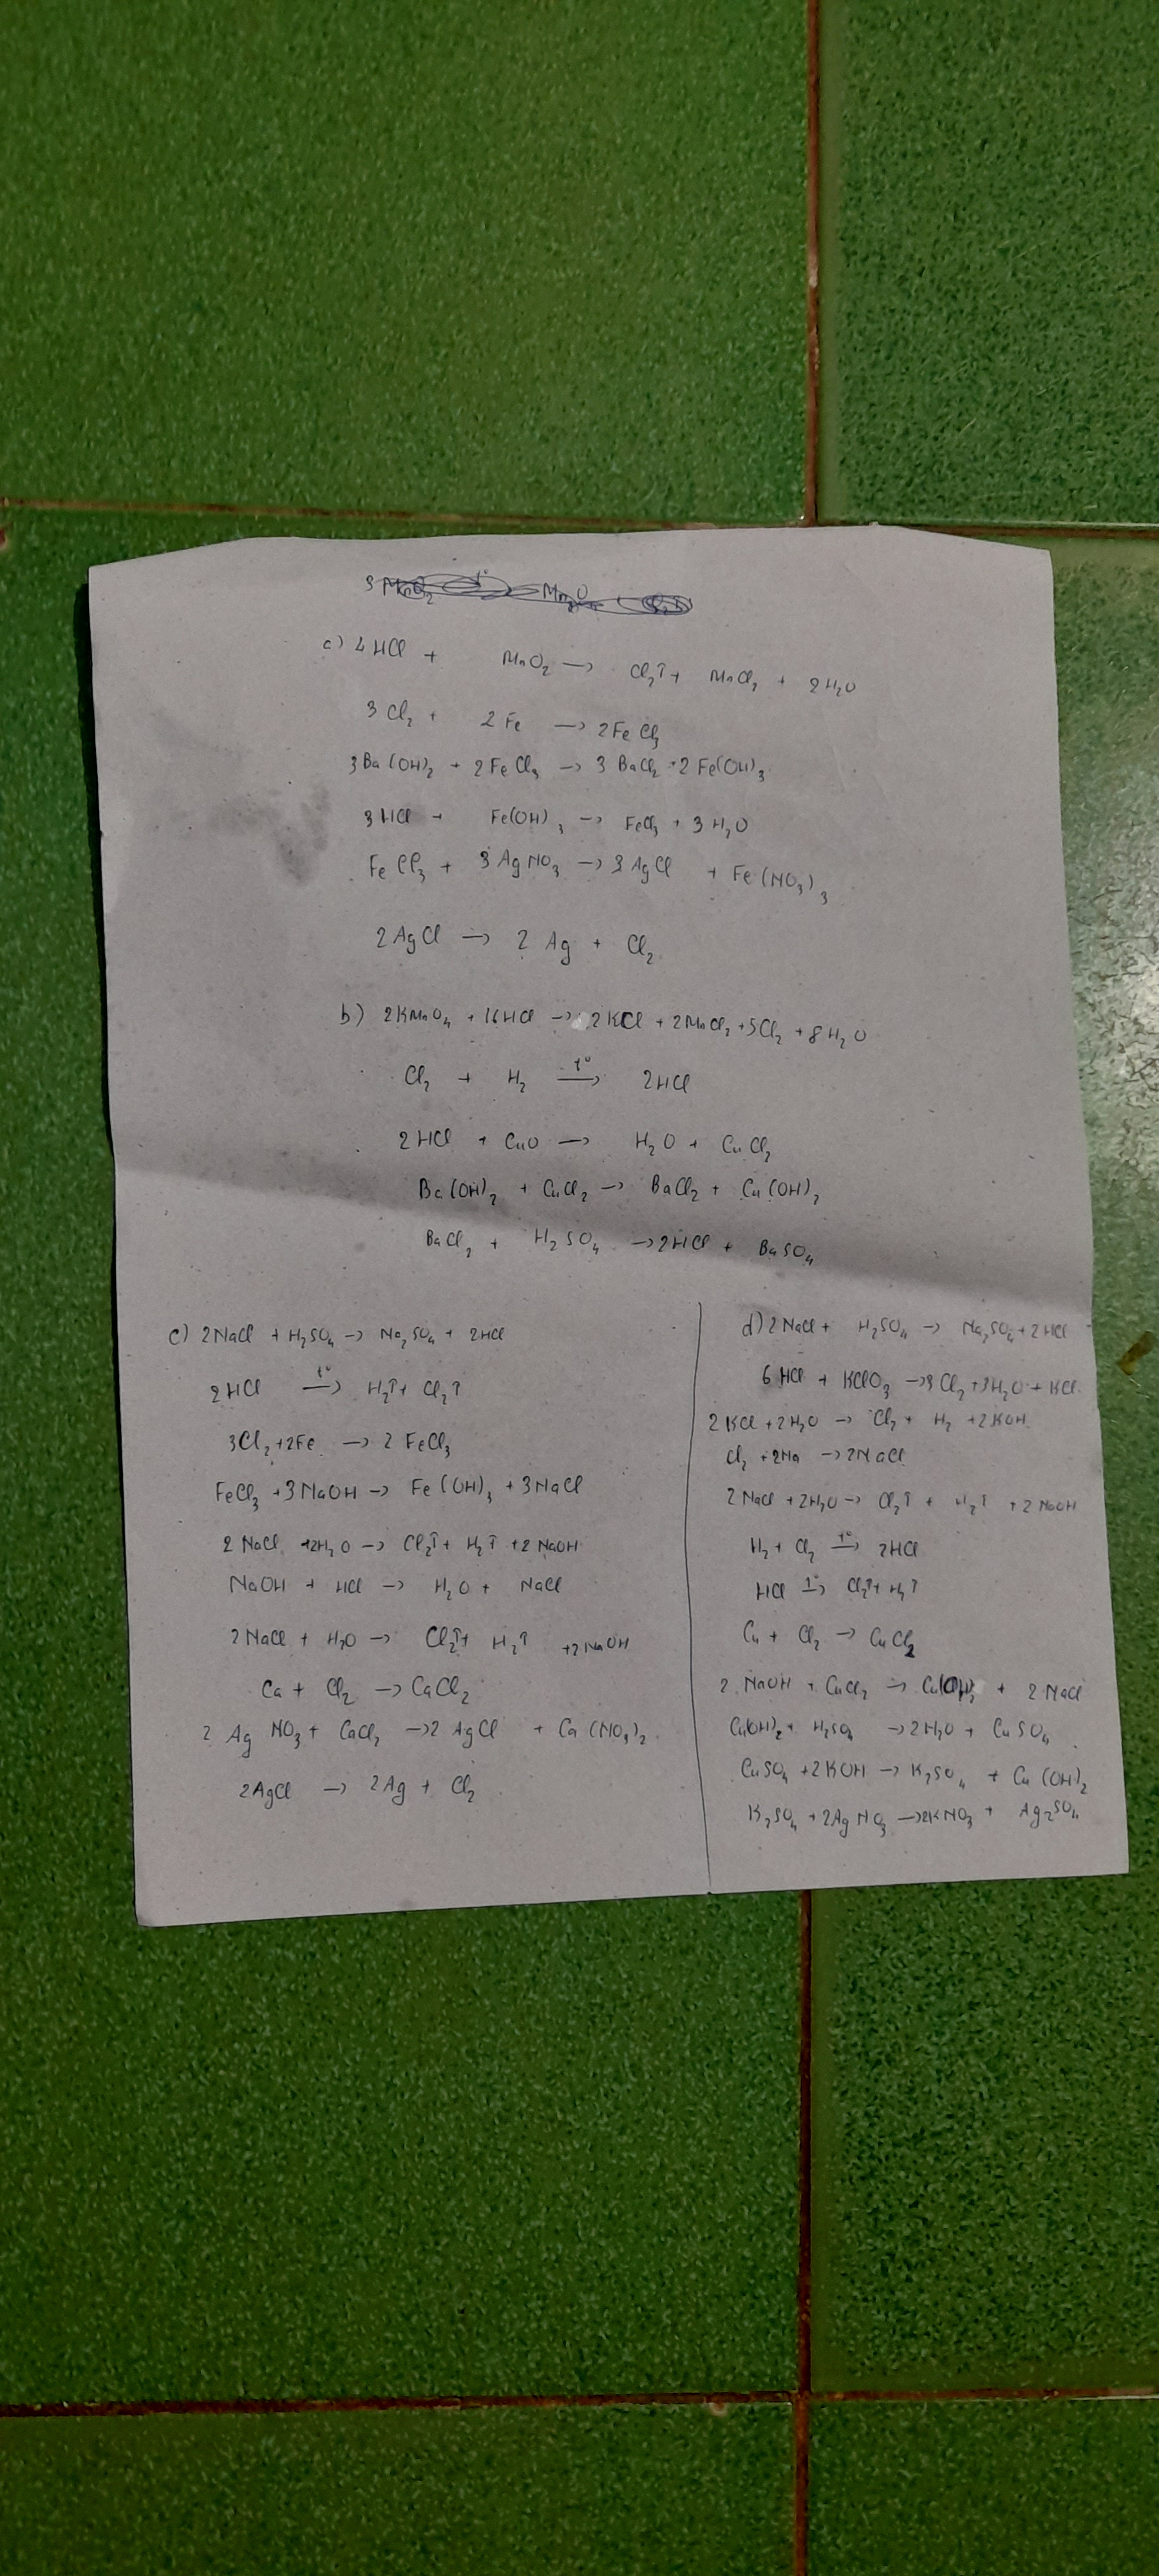 a) 4 HCl + MnO₂ → Cl₂↑ + MnCl₂ + 2H₂O
3 Cl₂ + 2 Fe → 2FeCl₃
3Ba(OH)₂ + 2FeCl₃ → 3 BaCl₂ + 2 Fe(OH)₃
3HCl + Fe(OH)₃ → FeCl₃ + 3 H₂O
FeCl₃ + 3 AgNO₃ → 3 AgCl + Fe(NO₃)₃
2AgCl → 2 Ag + Cl₂
b) 2KMnO₄ + 16HCl → 2KCl + 2MnCl₂ + 5Cl₂ + 8H₂O
Cl₂ + H₂ t°→ 2HCl
2HCl + CuO → H₂O + CuCl₂
Ba(OH)₂ + CuCl₂ → BaCl₂ + Cu(OH)₂
BaCl₂ + H₂SO₄ → 2HCl + BaSO₄
c) 2NaCl + H₂SO₄ → Na₂SO₄ + 2HCl
2HCl t°→ H₂↑ + Cl₂↑
3Cl₂ + 2Fe → 2 FeCl₃
FeCl₃ + 3NaOH → Fe(OH)₃ + 3NaCl
2 NaCl + 2H₂O → Cl₂↑ + H₂↑ + 2 NaOH
NaOH + HCl → H₂O + NaCl
2NaCl + H₂O → Cl₂↑ + H₂↑ + 2NaOH
Ca + Cl₂ → CaCl₂
2 AgNO₃ + CaCl₂ → 2 AgCl + Ca(NO₃)₂
2AgCl → 2Ag + Cl₂
d) 2NaCl + H₂SO₄ → Na₂SO₄ + 2HCl
6 HCl + KClO₃ → 3Cl₂ + 3H₂O + KCl
2 KCl + 2H₂O → Cl₂ + H₂ + 2KOH
Cl₂ + 2Na → 2NaCl
2NaCl + 2H₂O → Cl₂↑ + H₂↑ + 2 NaOH
H₂ + Cl₂ t°→ 2HCl
HCl t°→ Cl₂↑ + H₂↑
Cu + Cl₂ → CuCl₂
2 NaOH + CuCl₂ → Cu(OH)₂ + 2 NaCl
Cu(OH)₂ + H₂SO₄ → 2H₂O + CuSO₄
CuSO₄ + 2KOH → K₂SO₄ + Cu(OH)₂
K₂SO₄ + 2AgNO₃ → 2KNO₃ + Ag₂SO₄